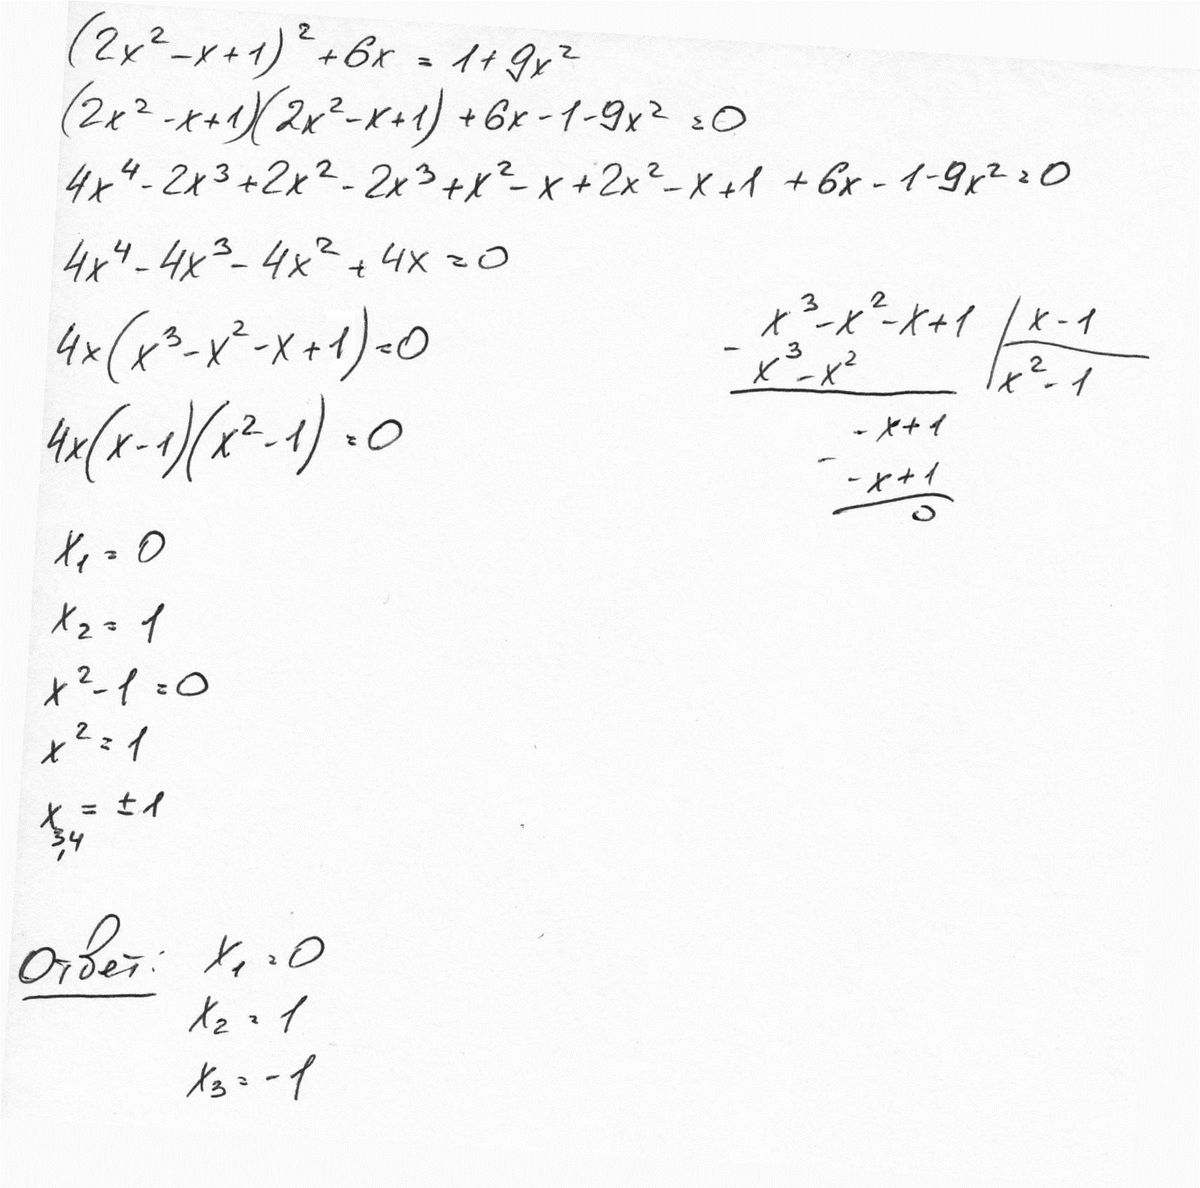 (2x² - x + 1)² + 6x = 1 + 9x²
(2x² - x + 1)(2x² - x + 1) + 6x - 1 - 9x² = 0
4x⁴ - 2x³ + 2x² - 2x³ + x² - x + 2x² - x + 1 + 6x - 1 - 9x² = 0
4x⁴ - 4x³ - 4x² + 4x = 0
4x(x³ - x² - x + 1) = 0
4x(x - 1)(x² - 1) = 0
x₁ = 0
x₂ = 1
x² - 1 = 0
x² = 1
x₃,₄ = ±1
- x³ - x² - x + 1 | x - 1
x³ - x² | x² - 1
- x + 1
-
- x + 1
0
Ответ: x₁ = 0
x₂ = 1
x₃ = -1